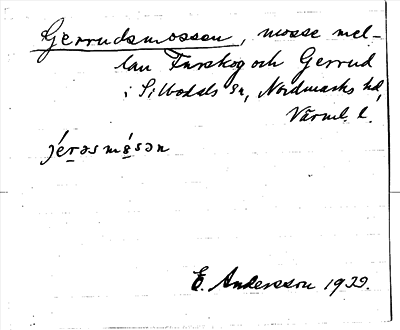 Gerrudsmossen, mosse mel-
lan Furskog och Gerrud
i Silbodals sn, Nordmarks hd,
Värml. l.
jérəsmɵ̀sən
E. Andersson 1939.